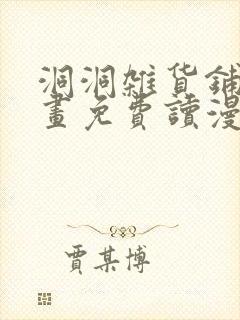 洞洞雜貨鋪
畫免費讀漫
賈某博